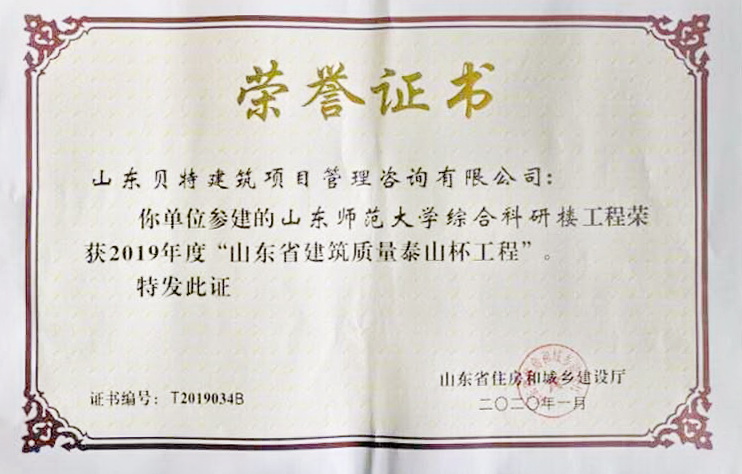 荣誉证书
山东贝特建筑项目管理咨询有限公司：
你单位参建的山东师范大学综合科研楼工程荣
获2019年度“山东省建筑质量泰山杯工程”。
特发此证
山东省住房和城乡建设厅
证书编号：T2019034B
二〇二〇年一月